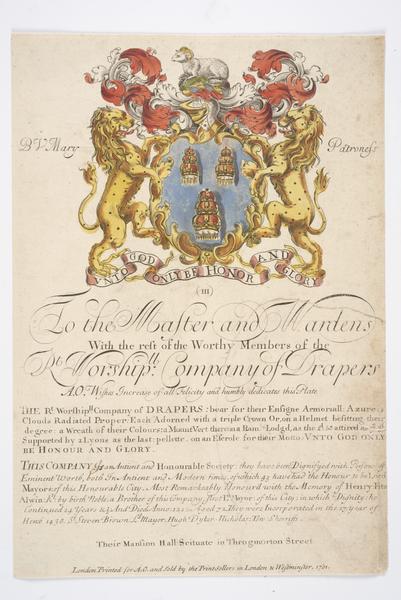 B. V. Mary
Patroness
VNTO GOD ONLY BE HONOR AND GLORY
(III)
To the Master and Wardens
With the rest of the Worthy Members of the
Rt. Worshipll. Company of Drapers
A.O. Wishes Increase of all Felicity and humbly dedicates this Plate
THE Rt. Worshipll Company of DRAPERS: bear for their Ensigne Armoriall: Azure 3
Clouds Radiated Proper: Each Adorned with a triple Crown Or, on a Helmet befitting their
degree: a Wreath of their Colours: a Mount Vert thereon a Ram Lodgd, as the 2d. so attired
Supported by 2 Lyons as the last: pellette: on an Escrole for their Motto VNTO GOD ONLY
BE HONOUR AND GLORY.
THIS COMPANY Is an Antient and Honourable Society: they have been Dignifyed with Persons of
Eminent Worth, both In Antient and Modern times, of which 43 have had the Honour to be Lord
Mayors of this Honourable City. Most Remarkeably Honourd with the Memory of Henry Fitz
Alwin Kt. by birth Noble, a Brother of this Company, first Ld. Mayor of this City: in which Dignity he
Continued 24 Years & ½ And Died Anno: They were Incorporated in the 17 year of
Hen: 6 1430. Sr. Steven Brown Ld. Mayer: Hugh Dyker Nicholas Yoo Sheriffs
Their Mansion Hall: Scituate in Throgmorton Street
London Printed for A.O. and Sold by the Printsellers in London & Westminster, 1701.